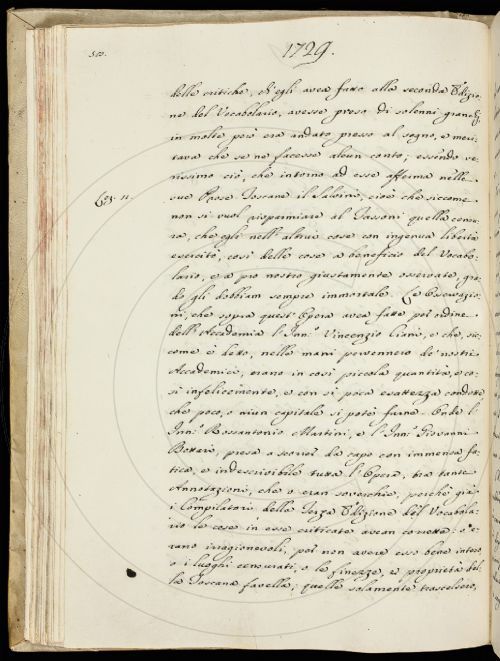 500.
1729.
delle critiche, ch'egli avea fatto alla seconda Edizio=
ne del Vocabolario, avesse preso di solenni granchj,
in molte però era andato presso al segno, e meri=
tava che se ne facesse alcun conto; essendo ve=
rissimo ciò, che intorno ad esse afferma nelle
sue Prose Toscane il Salvini, cioè che siccome
Lez. 11.
non si vuol risparmiare al Tassoni quella censu=
ra, che egli nell'altrui cose con ingenua libertà
esercitò, così delle cose a beneficio del Vocabo=
lario, e a pro nostro giustamente osservate, gra=
do gli dobbiam sempre immortale. Le Osservazio=
ni, che sopra quest'Opera avea fatte poi ndine
dell'Accademia l'Inn.º Vincenzio Ciani, e che, sic=
come è detto, nelle mani pervennero de' nostri
Accademici, erano in così piccola quantità, e co=
sì infelicemente, e con sì poca esattezza condotte
che poco, o niun capitale si potè farne. Onde l'
Inn.º Rossantonio Martini, e l'Inn.º Giovanni
Bottari, presa a scorrer da capo con immensa fa=
tica, e indescrivibile tutta l'Opera, tra tante
Annotazioni, che o eran soverchie, perchè già
i Compilatori della Terza Edizione del Vocabola=
rio le cose in esse criticate avean corrette: o e=
rano irragionevoli, poi non avere esso bene inteso,
o i luoghi censurati, o le finezze, e proprietà del=
la Toscana favella; quelle solamente trascelsero,